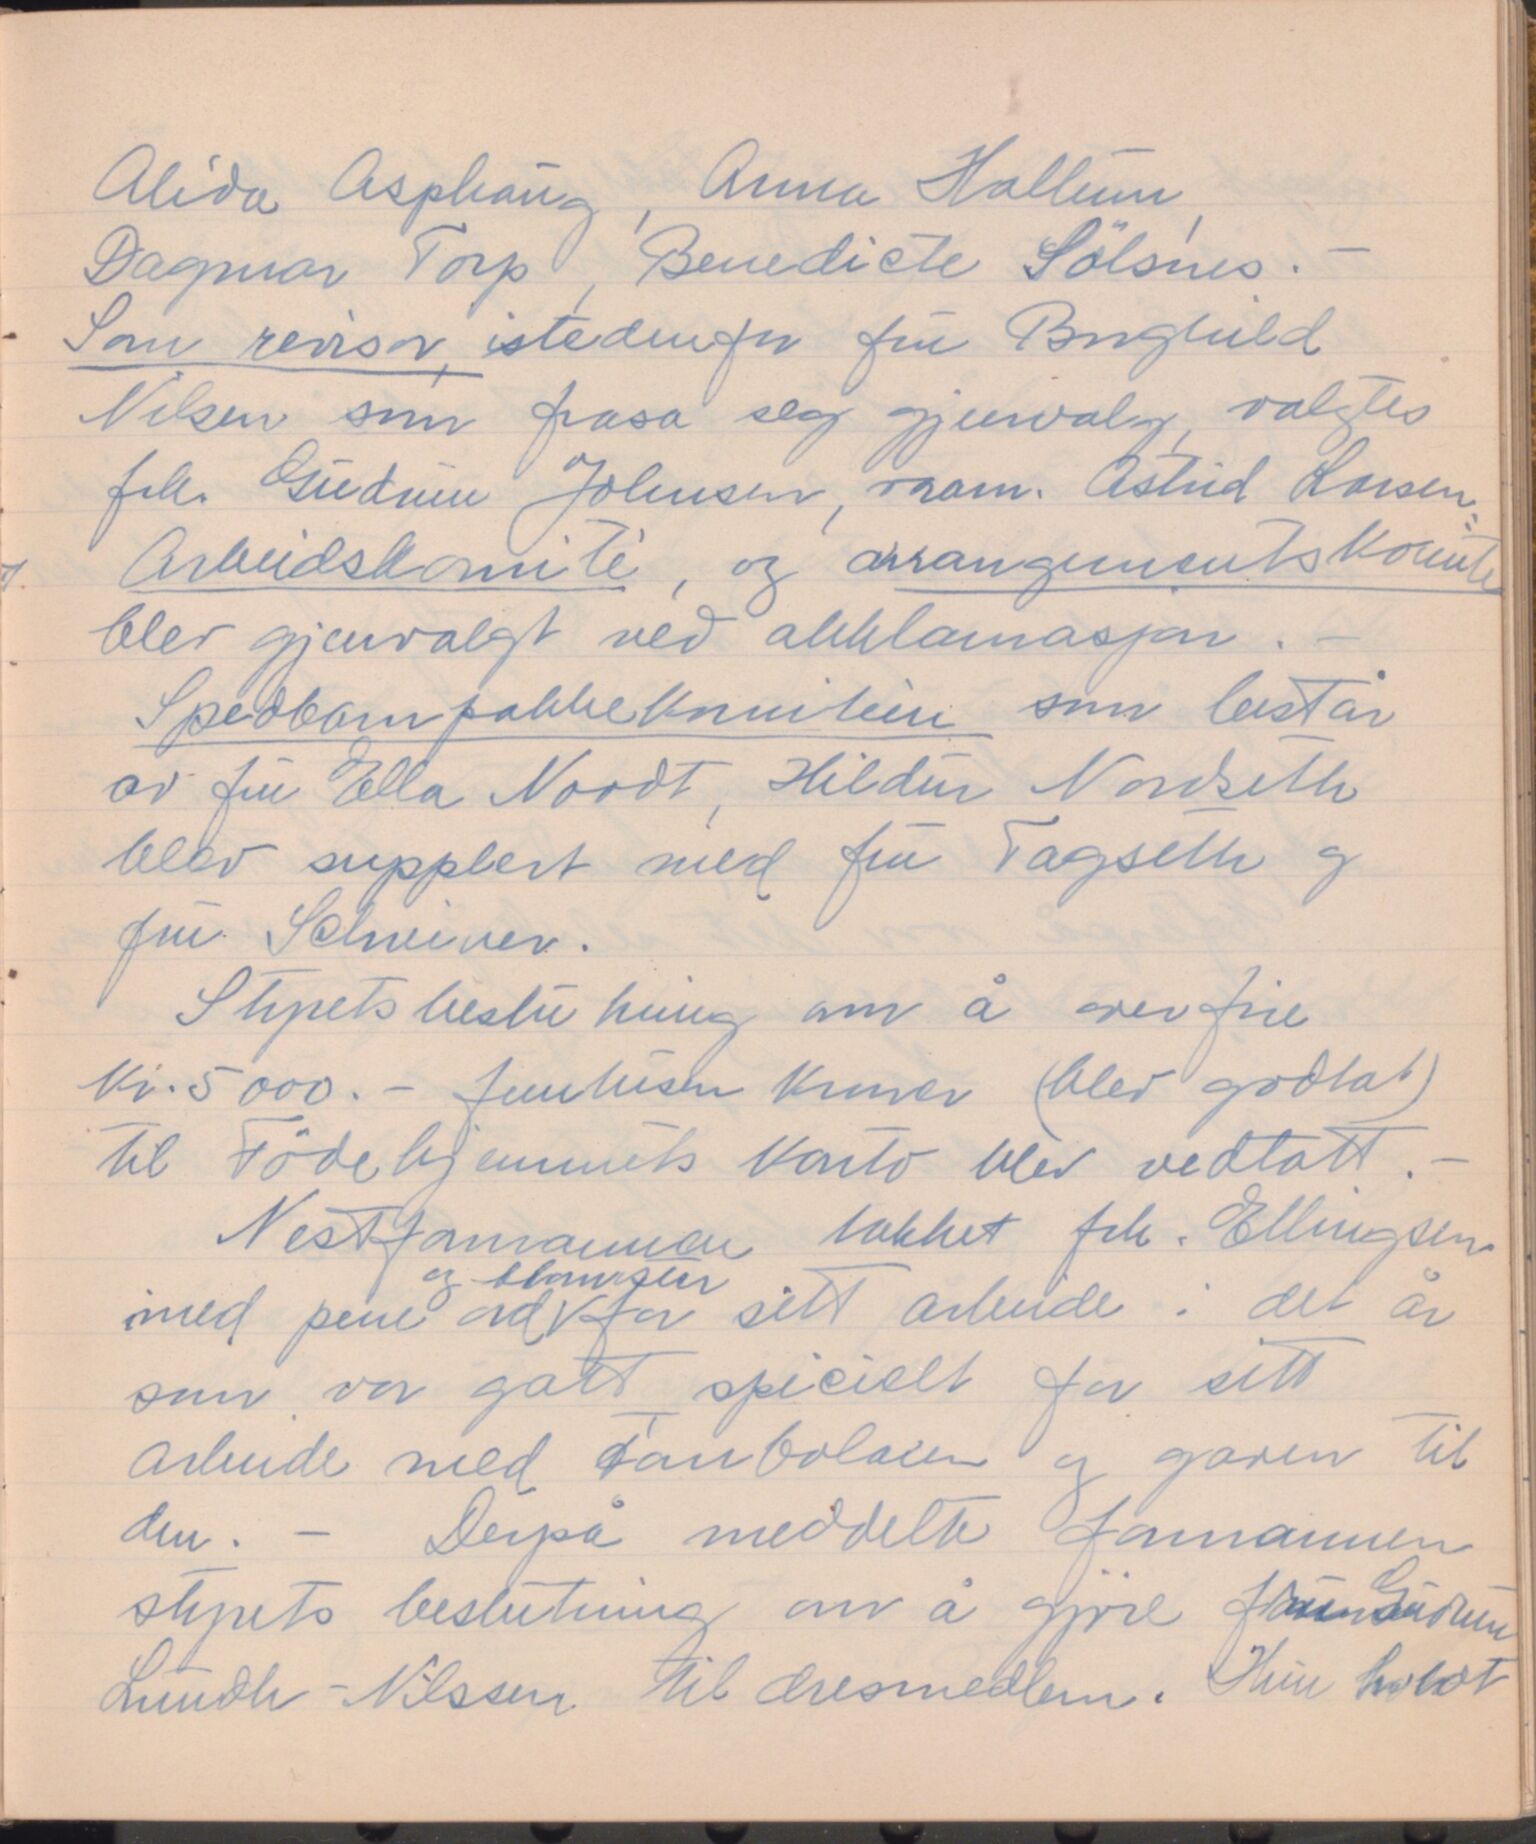 Alida Asphaug, Anna Hallum,
Dagmar Torp, Benedicte Sölsnes. -
Som revisor, istedenfor fru Borghild
Nilsen som frasa seg gjenvalg, valgtes
frk. Gudrun Johnsen, varam. Astrid Larsen.
Arbeidskomite, og arrangementskomite
blev gjenvalgt ved akklamasjon. -
Spedbarnpakkekomiteen som består
av fru Ella Nordt, Hildur Nordseth
blev supplert med fru Tagseth og
fru Schreiner.
Styrets beslutning om å overføre
kr. 5000. - femtusen kroner (blev godtat)
til Födehjemmets konto blev vedtatt. -
Nestformannen takket frk. Ellingsen
og blomster
med pene ord for sitt arbeide i det år
som var gått, specielt for sitt
arbeide med Tombolaen og gaven til
den. - Derpå meddelte formannen
styrets beslutning om å gjöre Gudrun
Lundh-Nilssen til æresmedlem. Hun holdt